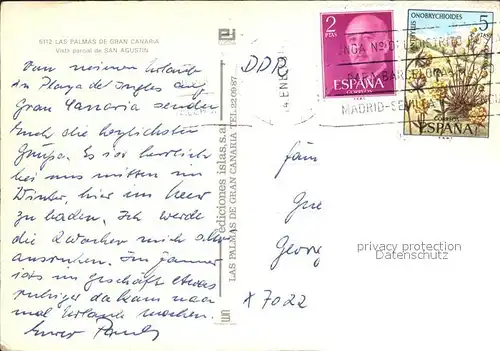 6112 LAS PALMAS DE GRAN CANARIA
Vista parcial de SAN AGUSTIN
Von meinem Urlaub
in Playa del Ingles auf
Gran Canaria senden
Euch die herzlichsten
Grüße. Es ist herrlich
bei uns mitten im
Winter, hier im Meer
zu baden. Ich werde
die 2 Wochen mich
ausruhen. Im Januar
ists im Geschäft etwas
ruhiger da kann man
mal Urlaub machen.
Euer
ediciones islas, s.a.
LAS PALMAS DE GRAN CANARIA TEL. 22 09 87
DDR
2
PTAS
ESPAÑA
CORREOS
5
PTAS
ONOBRYCHIOIDES
CORREOS
ESPAÑA
BARCELONA
MADRID-SEVILLA
4 EN
Georg
x 7022
privacy protection
Datenschutz